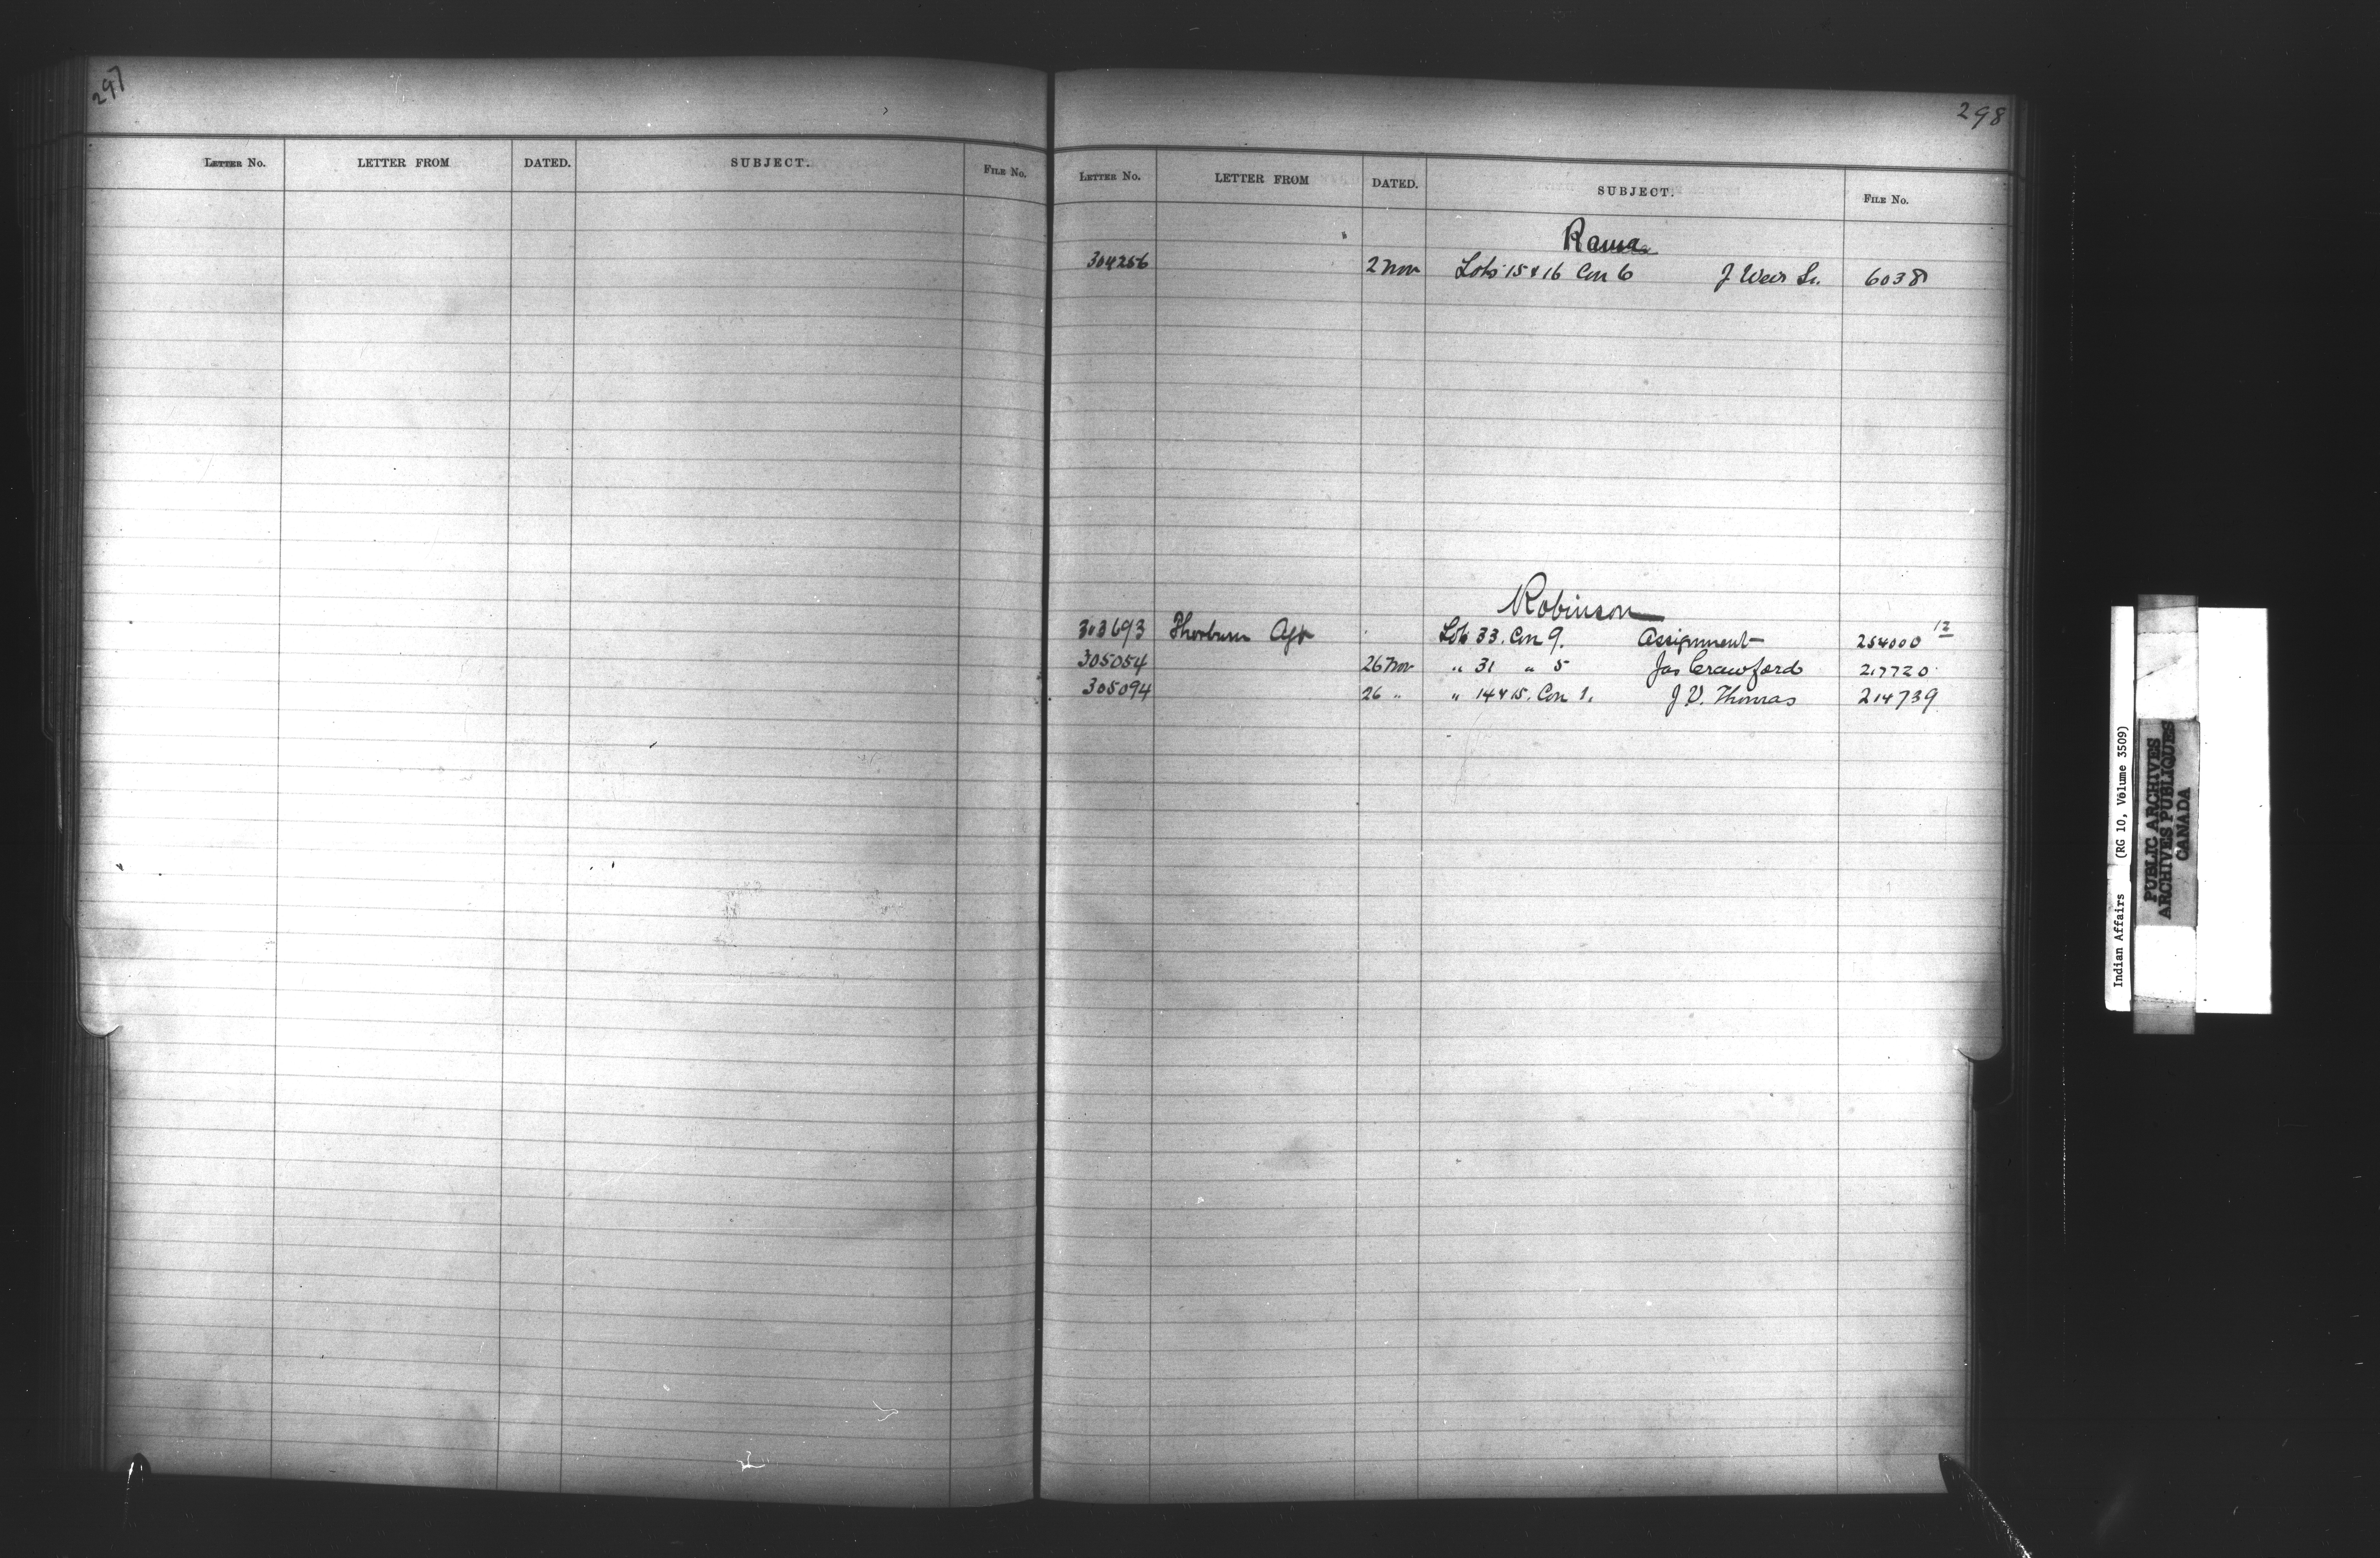 297
LETTER No. LETTER FROM DATED. SUBJECT. FILE No.
298
LETTER No. LETTER FROM DATED. SUBJECT. FILE No.
Rama
304256 2 Nov Lots 15 & 16 Con 6 J Weir Sr. 6038
Robinson
303693 Thorburn Agt Lot 33. Con 9. Assignment 254000 12
305054 26 Nov " 31 " 5 Jas Crawford 217720
305094 26 " " 14 & 15. Con 1. J V. Thomas 214739
Indian Affairs (RG 10, Volume 3509)
PUBLIC ARCHIVES
ARCHIVES PUBLIQUES
CANADA